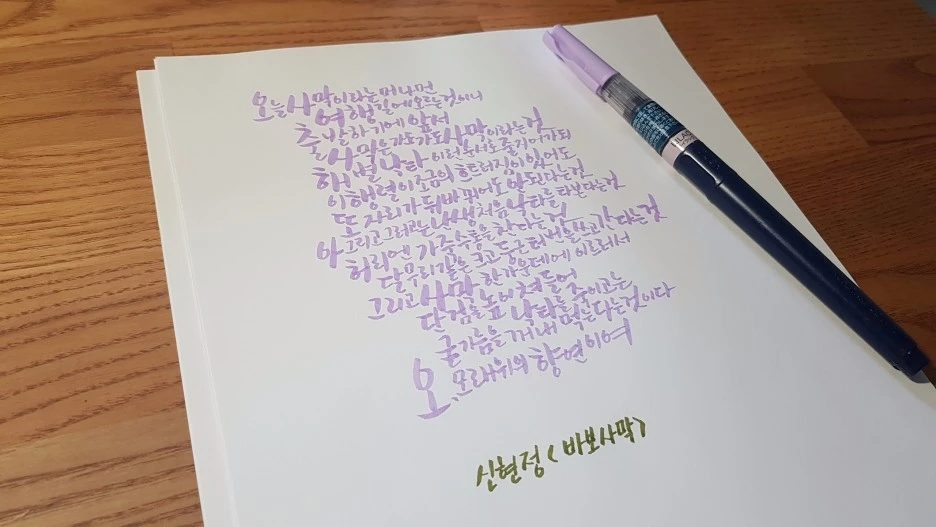 오늘 사막이라는 머나먼
여행길에 오르는 것이니
출발하기에 앞서
사막은 가도 가도 사막이라는 것
해 별 낙타 이런 순서로 줄지어 가되
이 행렬이 조금의 흐트러짐이 있어도
또 자리가 뒤바뀌어도 안 된다는 것
아 그리고 그러고는 난생 처음 낙타를 타본다는 것
허리엔 가죽수통을 찬다는 것
달무리 같은 크고 둥근 터번을 쓰고 간다는 것
그리고 사막 한가운데에 이르러서
단검을 높이 쳐들어
낙타를 죽이고는
굳기름을 꺼내 먹는다는 것이다
오, 모래위의 향연이여
신현정 <바보사막>